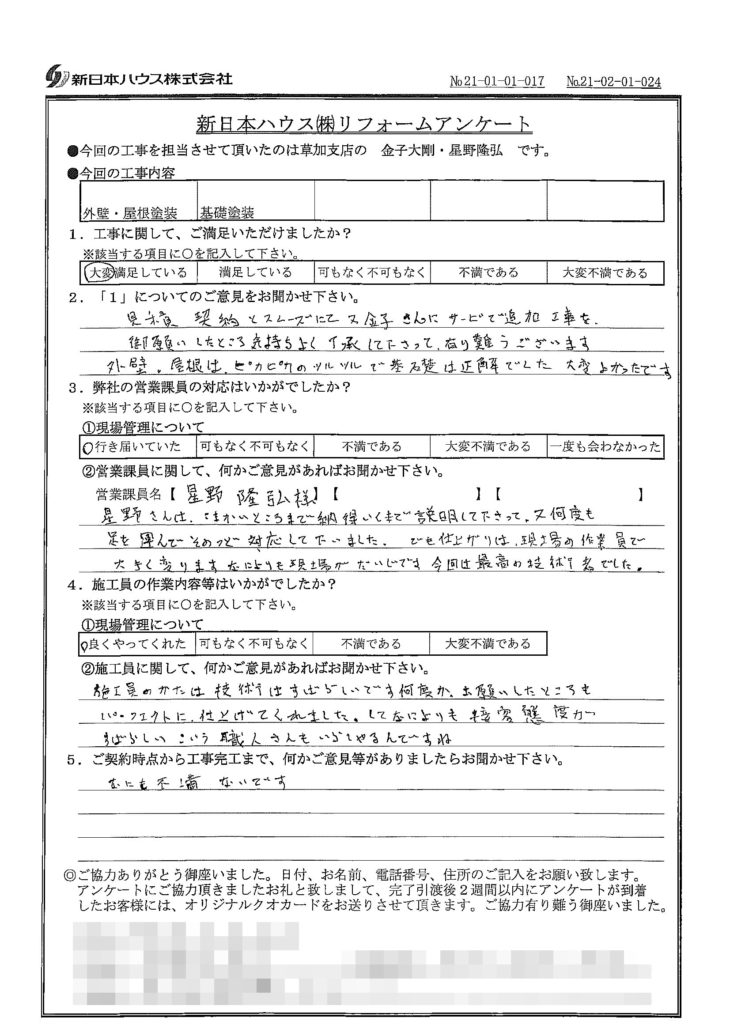 新日本ハウス株式会社 No.21-01-01-017 No.21-02-01-024
新日本ハウス㈱リフォームアンケート
●今回の工事を担当させて頂いたのは草加支店の 金子大剛・星野隆弘 です。
●今回の工事内容
外壁・屋根塗装 基礎塗装
1．工事に関して、ご満足いただけましたか？
※該当する項目に○を記入して下さい。
大変満足している 満足している 可もなく不可もなく 不満である 大変不満である
2．「1」についてのご意見をお聞かせ下さい。
見積 契約とスムーズにて 又金子さんに サービスで追加工事を、
御願いしたところ気持ちよく了承して下さって、有り難うございます
外壁。屋根は、ピカピカのツルツルで は正解でした 大変よかったです
3．弊社の営業課員の対応はいかがでしたか？
※該当する項目に○を記入して下さい。
①現場管理について
○行き届いていた 可もなく不可もなく 不満である 大変不満である 一度も会わなかった
②営業課員に関して、何かご意見があればお聞かせ下さい。
営業課員名【星野 隆弘様】【 】【 】
星野さんは、こまかいところまで納得いくまで説明して下さって、又何度も
足を運んでそのつど対応して下いました。 でも仕上がりは、現場の作業員で
大きく変ります なによりも現場がだいじです 今回は最高の技術者でした。
4．施工員の作業内容等はいかがでしたか？
※該当する項目に○を記入して下さい。
①現場管理について
○良くやってくれた 可もなく不可もなく 不満である 大変不満である
②施工員に関して、何かご意見があればお聞かせ下さい。
施工員のかたは 技術はすばらしいです何度か、お願いしたところも
パーフェクトに、仕上げてくれました。してなによりも 接客態度が
すばらしい こういう 職人さんもいらしやるんですね
5．ご契約時点から工事完工まで、何かご意見等がありましたらお聞かせ下さい。
なにも不満 ないです
◎ご協力ありがとう御座いました。日付、お名前、電話番号、住所のご記入をお願い致します。
アンケートにご協力頂きましたお礼と致しまして、完了引渡後2週間以内にアンケートが到着
したお客様には、オリジナルクオカードをお送りさせて頂きます。ご協力有り難う御座いました。